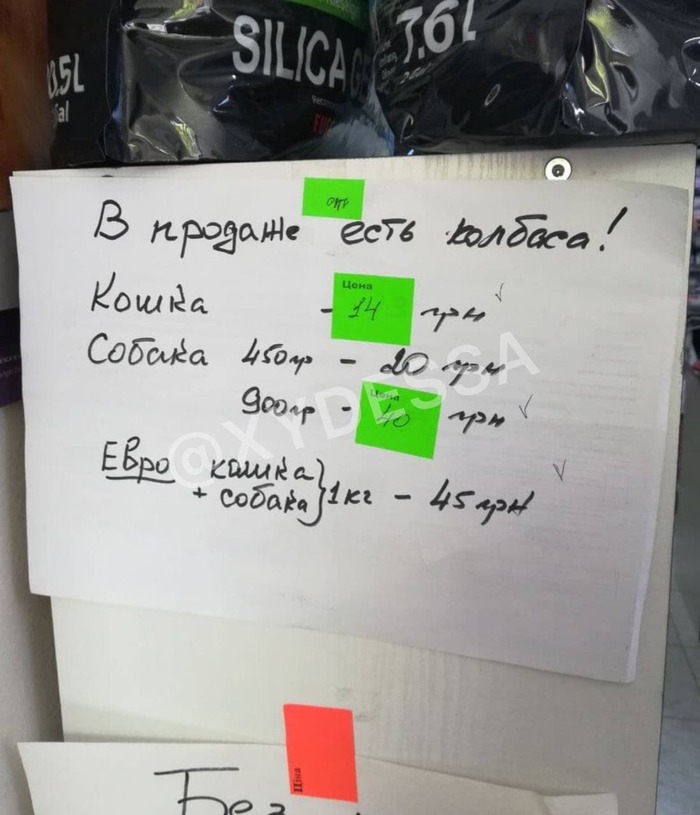 SILICA GE
7.6L
3.5L
ial
В продаже есть колбаса!
Кошка - Цена 14 грн
Собака 450гр - 20 грн
900гр - Цена 40 грн
Евро кошка
+ собака } 1кг - 45 грн
@XYDESSA
Ціна
Без